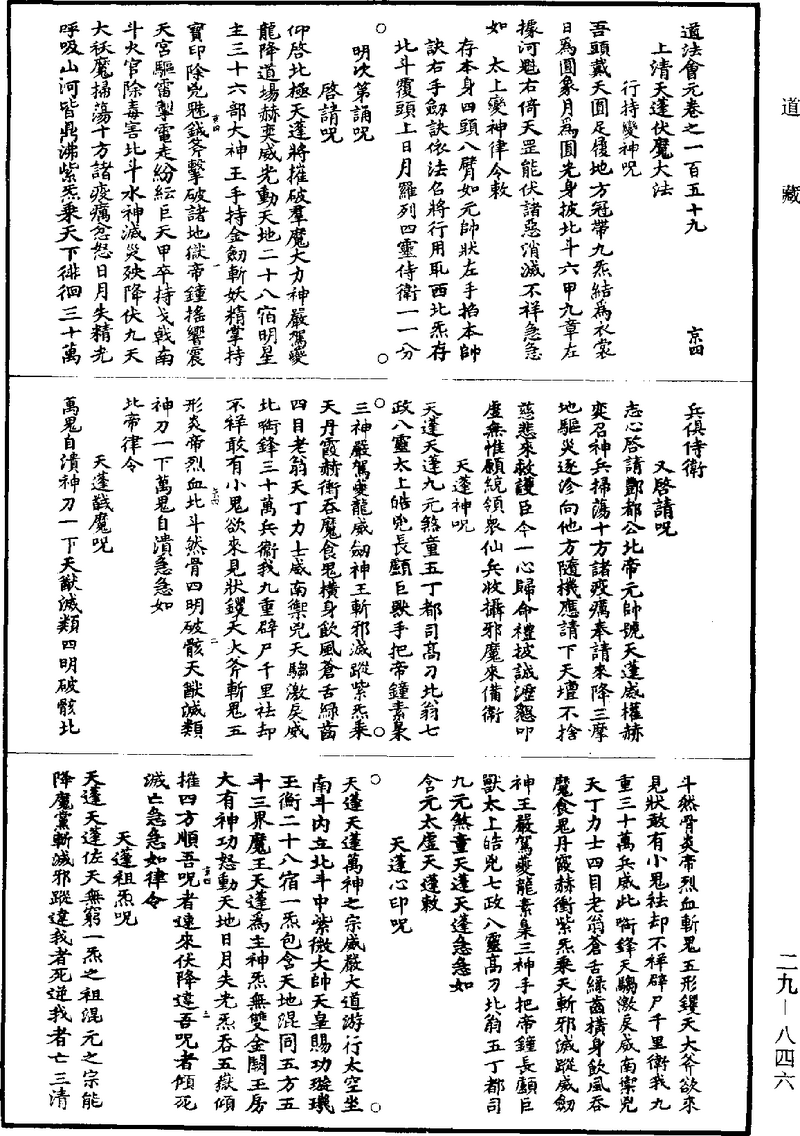 道藏
道法會元卷之一百五十九　京四
上清天蓬伏魔大法
行持變神呪
吾頭戴天圓足履地方冠帶九炁結為衣裳
日為圓象月為圓光身披北斗六甲九章左
據河魁右倚天罡能伏諸惡消滅不祥急急
如　太上變神律令敕
存本身四頭八臂如元帥狀左手掐本帥
訣右手劍訣依法召將行用取西北炁存
北斗覆頭上日月羅列四靈侍衛一一分
明次第誦呪
啓請呪
仰啓北極天蓬將摧破羣魔大力神嚴駕夔
龍降道場赫奕威光動天地二十八宿明星
主三十六部大神王手持金劍斬妖精掌持
寶印除兇魅鉞斧擊破諸地獄帝鍾搖響震
天宮驅雷掣電走紛紜巨天甲卒持戈戟南
斗火官除毒害北斗水神滅災殃降伏九天
大祅魔掃蕩十方諸疫癘忿怒日月失精光
呼吸山河皆鼎沸紫炁乘天下徘徊三十萬
兵俱侍衛
又啓請呪
志心啓請酆都公北帝元帥號天蓬威權赫
奕召神兵掃蕩十方諸疫癘奉請來降三摩
地驅災逐沴向他方隨機應請下天壇不捨
慈悲來救護臣今一心歸命禮披誠瀝懇叩
虛無惟願統領衆仙兵收攝邪魔來備衛
天蓬神呪
天蓬天蓬九元煞童五丁都司高刀北翁七
政八靈太上皓兇長顱巨獸手把帝鐘素梟
三神嚴駕夔龍威劍神王斬邪滅蹤紫炁乘
天丹霞赫衝吞魔食鬼橫身飲風蒼舌綠齒
四目老翁天丁力士威南禦兇天騶激戾威
北銜鋒三十萬兵衛我九重辟尸千里袪却
不祥敢有小鬼欲來見狀钁天大斧斬鬼五
形炎帝烈血北斗然骨四明破骸天猷滅類
神刀一下萬鬼自潰急急如
北帝律令
天蓬馘魔呪
萬鬼自潰神刀一下天猷滅類四明破骸北
斗然骨炎帝烈血斬鬼五形钁天大斧欲來
見狀敢有小鬼袪却不祥辟尸千里衛我九
重三十萬兵威北銜鋒天騶激戾威南禦兇
天丁力士四目老翁蒼舌綠齒橫身飲風吞
魔食鬼丹霞赫衝紫炁乘天斬邪滅蹤威劍
神王嚴駕夔龍素梟三神手把帝鐘長顱巨
獸太上皓兇七政八靈高刀北翁五丁都司
九元煞童天蓬天蓬急急如
含元太虛天蓬敕
天蓬心印呪
天蓬天蓬萬神之宗威嚴大道游行太空坐
南斗內立北斗中紫微大帥天皇賜功璇璣
玉衡二十八宿一炁包含天地混同五方五
斗三界魔王天蓬為主神炁無雙金闕玉房
大有神功怒動天地日月失光炁吞五嶽傾
摧四方順吾呪者速來伏降違吾呪者傾死
滅亡急急如律令
天蓬祖炁呪
天蓬天蓬佐天無窮一炁之祖混元之宗能
降魔黨斬滅邪蹤違我者死逆我者亡三清
二九—八四六